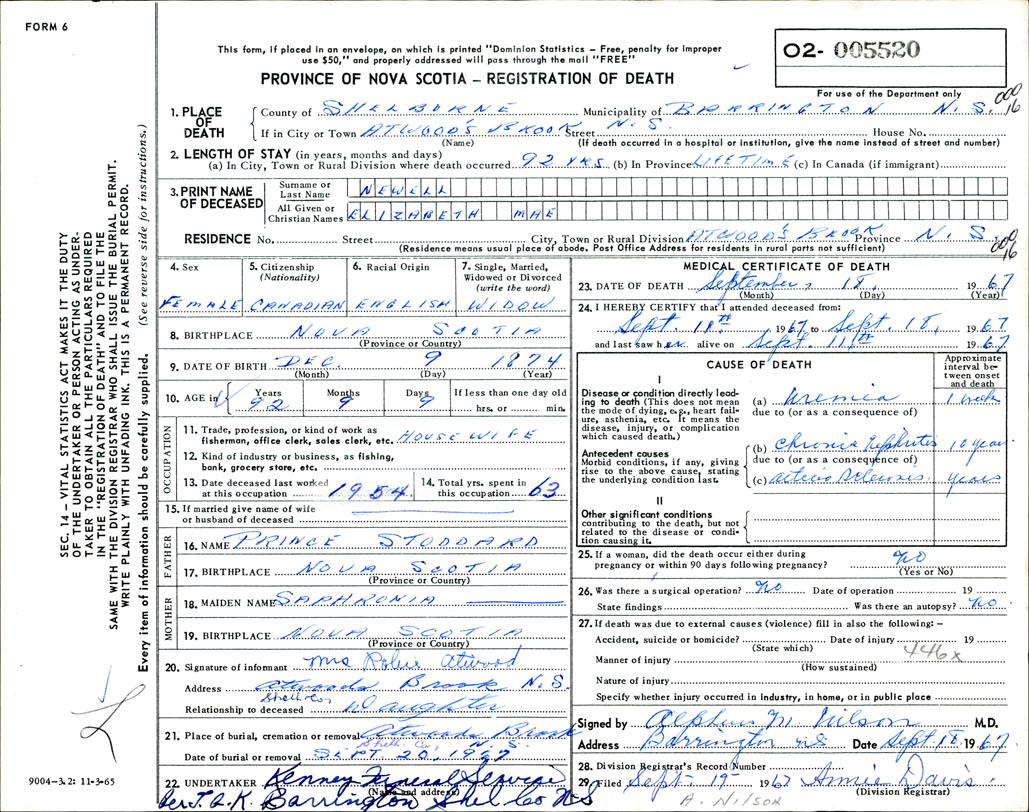 FORM 6
This form, if placed in an envelope, on which is printed "Dominion Statistics – Free, penalty for improper
use $50," and properly addressed will pass through the mail "FREE"
PROVINCE OF NOVA SCOTIA – REGISTRATION OF DEATH
O2- 005520
For use of the Department only
000
16
SEC. 14 – VITAL STATISTICS ACT MAKES IT THE DUTY
OF THE UNDERTAKER OR PERSON ACTING AS UNDER-
TAKER TO OBTAIN ALL THE PARTICULARS REQUIRED
IN THE "REGISTRATION OF DEATH" AND TO FILE THE
SAME WITH THE DIVISION REGISTRAR WHO SHALL ISSUE THE BURIAL PERMIT.
WRITE PLAINLY WITH UNFADING INK. THIS IS A PERMANENT RECORD.
Every item of information should be carefully supplied. (See reverse side for instructions.)
9004-3.2: 11-3-65
1. PLACE OF DEATH
County of SHELBURNE Municipality of BARRINGTON N.S.
If in City or Town ATWOOD'S BROOK Street N.S. House No.
(Name) (If death occurred in a hospital or institution, give the name instead of street and number)
2. LENGTH OF STAY (in years, months and days)
(a) In City, Town or Rural Division where death occurred 92 YRS (b) In Province LIFETIME (c) In Canada (if immigrant)
3. PRINT NAME OF DECEASED
Surname or Last Name NEWELL
All Given or Christian Names ELIZABETH MAE
RESIDENCE No. Street City, Town or Rural Division ATWOOD'S BROOK Province N.S.
(Residence means usual place of abode. Post Office Address for residents in rural parts not sufficient)
000
16
4. Sex FEMALE
5. Citizenship (Nationality) CANADIAN
6. Racial Origin ENGLISH
7. Single, Married, Widowed or Divorced (write the word) WIDOW
8. BIRTHPLACE NOVA SCOTIA
(Province or Country)
9. DATE OF BIRTH DEC. 9 1874
(Month) (Day) (Year)
10. AGE in Years 92 Months 9 Days 9 If less than one day old
hrs. or min.
OCCUPATION
11. Trade, profession, or kind of work as
fisherman, office clerk, sales clerk, etc. HOUSEWIFE
12. Kind of industry or business, as fishing,
bank, grocery store, etc.
13. Date deceased last worked
at this occupation 1954
14. Total yrs. spent in
this occupation 63
15. If married give name of wife
or husband of deceased
FATHER
16. NAME PRINCE STODDARD
17. BIRTHPLACE NOVA SCOTIA
(Province or Country)
MOTHER
18. MAIDEN NAME SAPHRONIA
19. BIRTHPLACE NOVA SCOTIA
(Province or Country)
20. Signature of informant Mrs Atwood
Address Atwoods Brook N.S.
Shell. Co.
Relationship to deceased Daughter
21. Place of burial, cremation or removal Atwoods Brook
Shelb. Co., N.S.
Date of burial or removal SEPT 20, 1967
22. UNDERTAKER Kenney Funeral Service
(Name and address)
per J.A.K. Barrington Shel Co NS
MEDICAL CERTIFICATE OF DEATH
23. DATE OF DEATH September, 18, 1967
(Month) (Day) (Year)
24. I HEREBY CERTIFY that I attended deceased from:
Sept. 11th 1967 to Sept. 18, 1967
and last saw her alive on Sept. 11th 1967
CAUSE OF DEATH
Approximate interval between onset and death
I
Disease or condition directly lead-
ing to death (This does not mean
the mode of dying, e.g., heart fail-
ure, asthenia, etc. It means the
disease, injury, or complication
which caused death.)
(a) Uremia 1 week
due to (or as a consequence of)
Antecedent causes
Morbid conditions, if any, giving
rise to the above cause, stating
the underlying condition last.
(b) Chronic Nephritis 10 years
due to (or as a consequence of)
(c) Arteriosclerosis years
II
Other significant conditions
contributing to the death, but not
related to the disease or condi-
tion causing it.
25. If a woman, did the death occur either during
pregnancy or within 90 days following pregnancy? No
(Yes or No)
26. Was there a surgical operation? No Date of operation 19
State findings Was there an autopsy? No
27. If death was due to external causes (violence) fill in also the following: –
Accident, suicide or homicide? Date of injury 19
(State which) 446x
Manner of injury
(How sustained)
Nature of injury
Specify whether injury occurred in industry, in home, or in public place
Signed by Alpheus M. Wilson M.D.
Address Barrington NS Date Sept. 18 1967.
28. Division Registrar's Record Number
29. Filed Sept 19 1967 Annie Davis
(Division Registrar)
A. Nilson